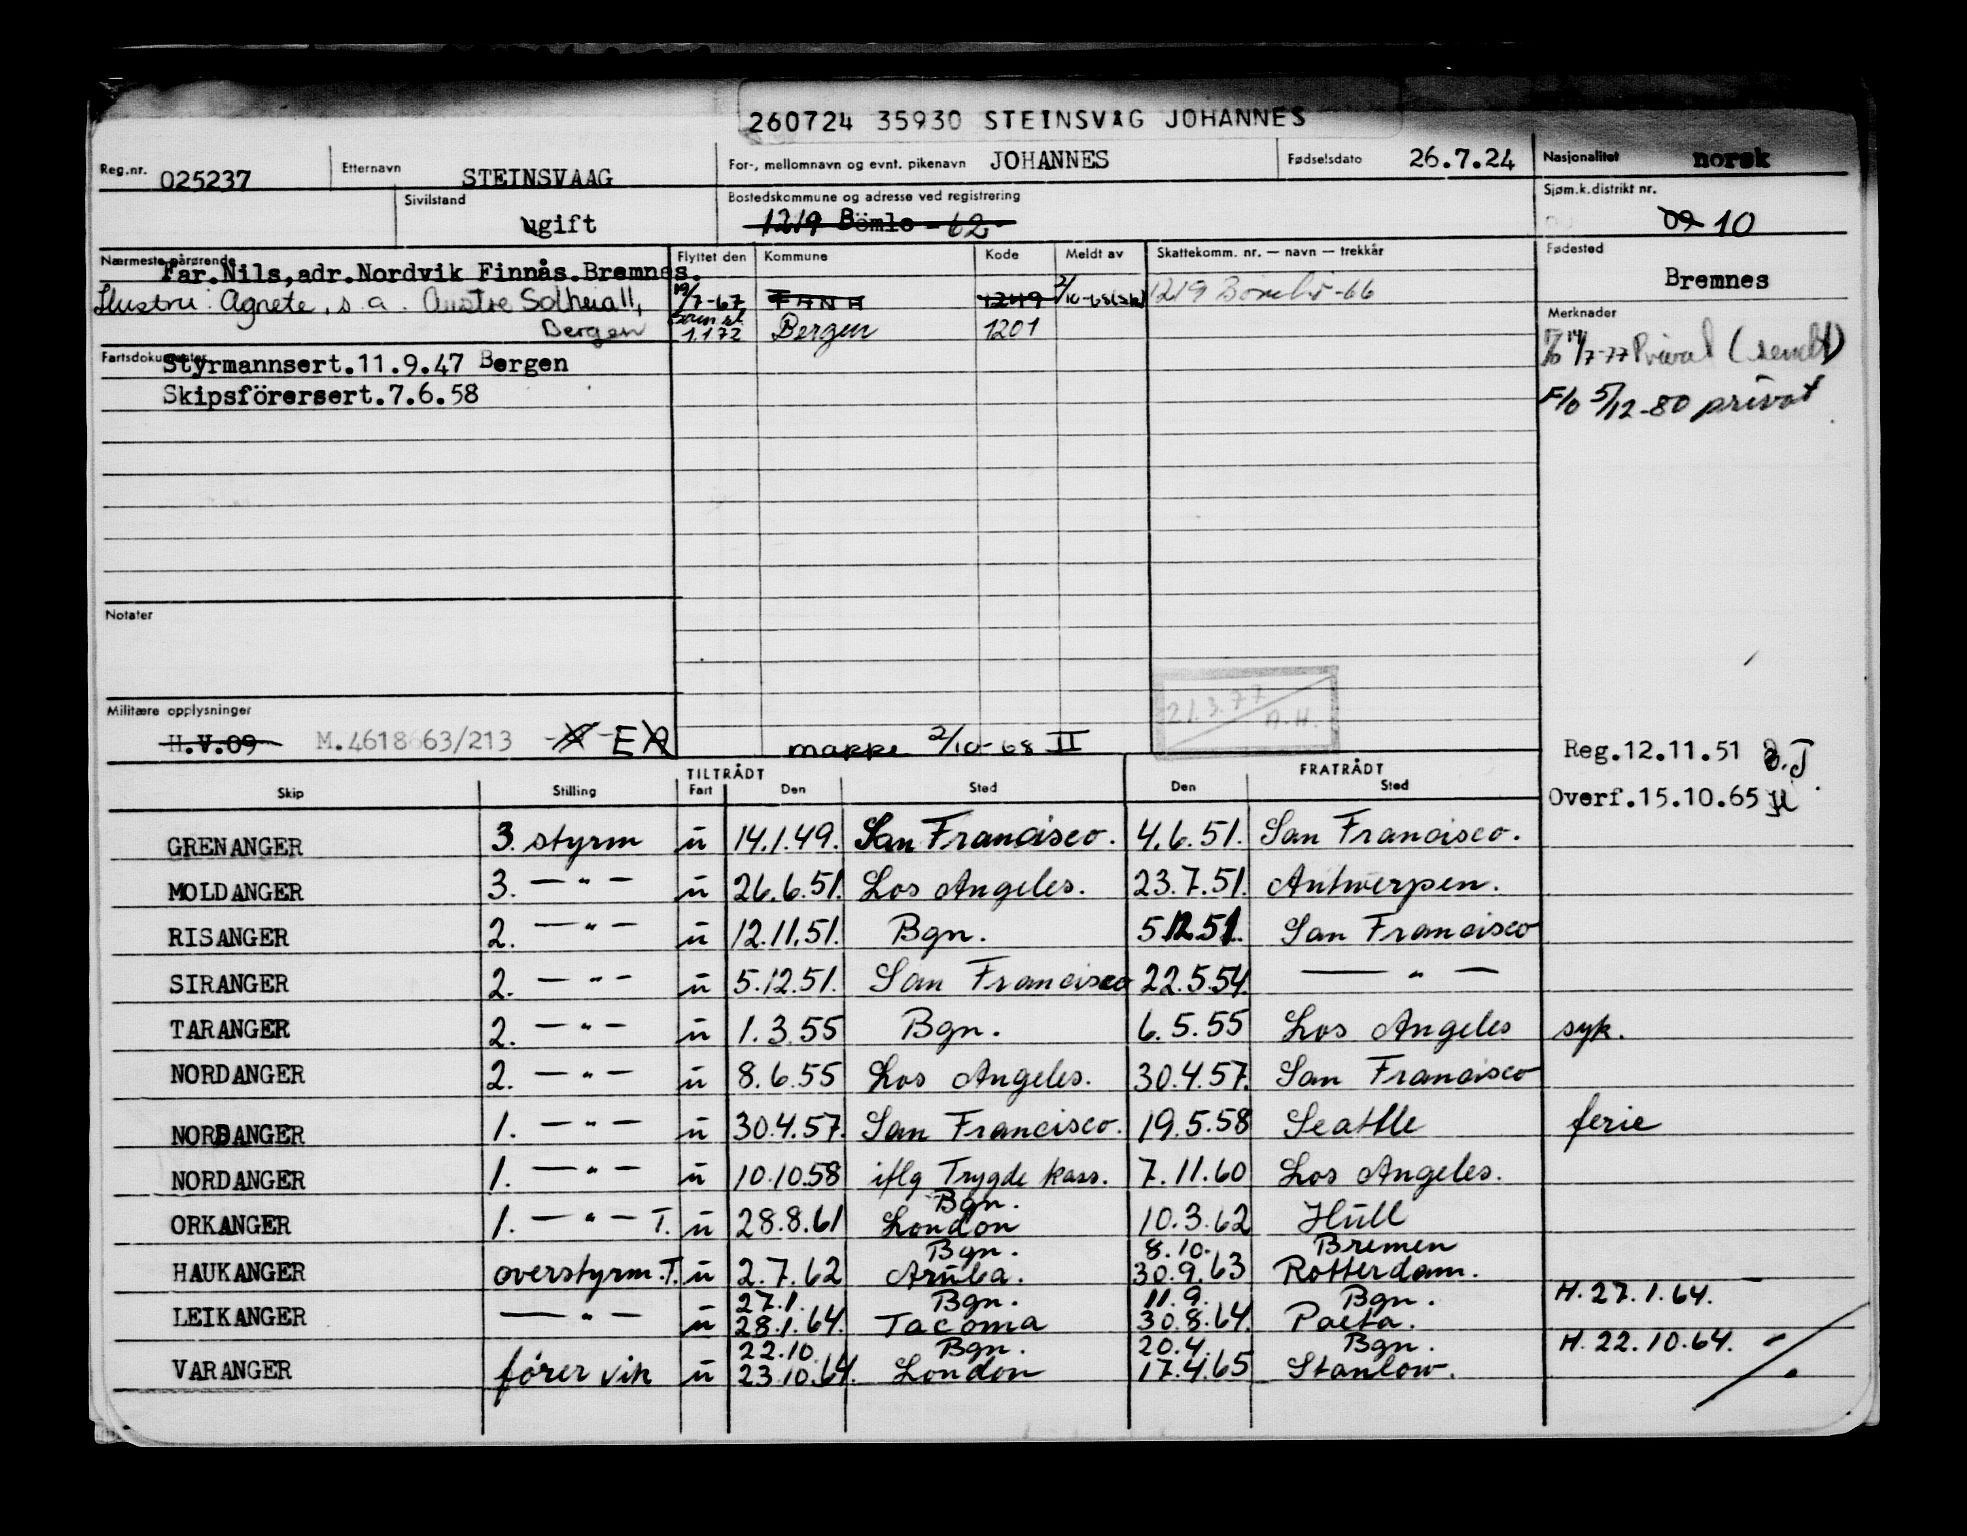 260724 35930 STEINSVÅG JOHANNES
Reg.nr. 025237 Etternavn STEINSVAAG For-, mellomnavn og evnt. pikenavn JOHANNES Fødselsdato 26.7.24 Nasjonalitet norsk
Sivilstand ugift Bostedskommune og adresse ved registrering 1219 Bömlo - 62 Sjøm.k.distrikt nr. 09 10
Nærmeste pårørende Flyttet den Kommune Kode Meldt av Skattekomm. nr. — navn — trekkår Fødested
Far.Nils,adr.Nordvik Finnås.Bremnes. Bremnes
Hustru: Agnete, s.a. Austre Solheia 11, 19/7-67 FANA 1249 2/10-68 1219 Bømlo -66
Bergen 1.1.72 Bergen 1201
Merknader
14/7-77 Privat (sendt)
F/o 5/12-80 privat
Fartsdokumenter
Styrmannsert.11.9.47 Bergen
Skipsförersert.7.6.58
Notater
21.3.77 A.H.
Militære opplysninger
H.V.09 M.4618663/213 ER mappe 2/10-68 II
Reg.12.11.51
Overf.15.10.65
TILTRÅDT FRATRÅDT
Skip Stilling Fart Den Sted Den Sted
GRENANGER 3. styrm u 14.1.49. San Francisco. 4.6.51. San Francisco.
MOLDANGER 3. — " — u 26.6.51. Los Angeles. 23.7.51. Antwerpen.
RISANGER 2. — " — u 12.11.51. Bgn. 5.12.51. San Francisco
SIRANGER 2. — " — u 5.12.51. San Francisco 22.5.54. — " —
TARANGER 2. — " — u 1.3.55 Bgn. 6.5.55 Los Angeles syk.
NORDANGER 2. — " — u 8.6.55 Los Angeles. 30.4.57. San Francisco
NORDANGER 1. — " — u 30.4.57. San Francisco. 19.5.58 Seattle ferie
NORDANGER 1. — " — u 10.10.58 iflg Trygdekass. 7.11.60 Los Angeles.
Bgn.
ORKANGER 1. — " — T. u 28.8.61 London 10.3.62 Hull
Bgn. 8.10. Bremen
HAUKANGER overstyrm.T. u 2.7.62 Aruba. 30.9.63 Rotterdam.
27.1. Bgn. 11.9. Bgn. H. 27.1.64. -
LEIKANGER — " — u 28.1.64. Tacoma 30.8.64. Paita.
22.10. Bgn. 20.4. Bgn. H. 22.10.64. -
VARANGER fører vik u 23.10.64. London 17.4.65 Stanlow.